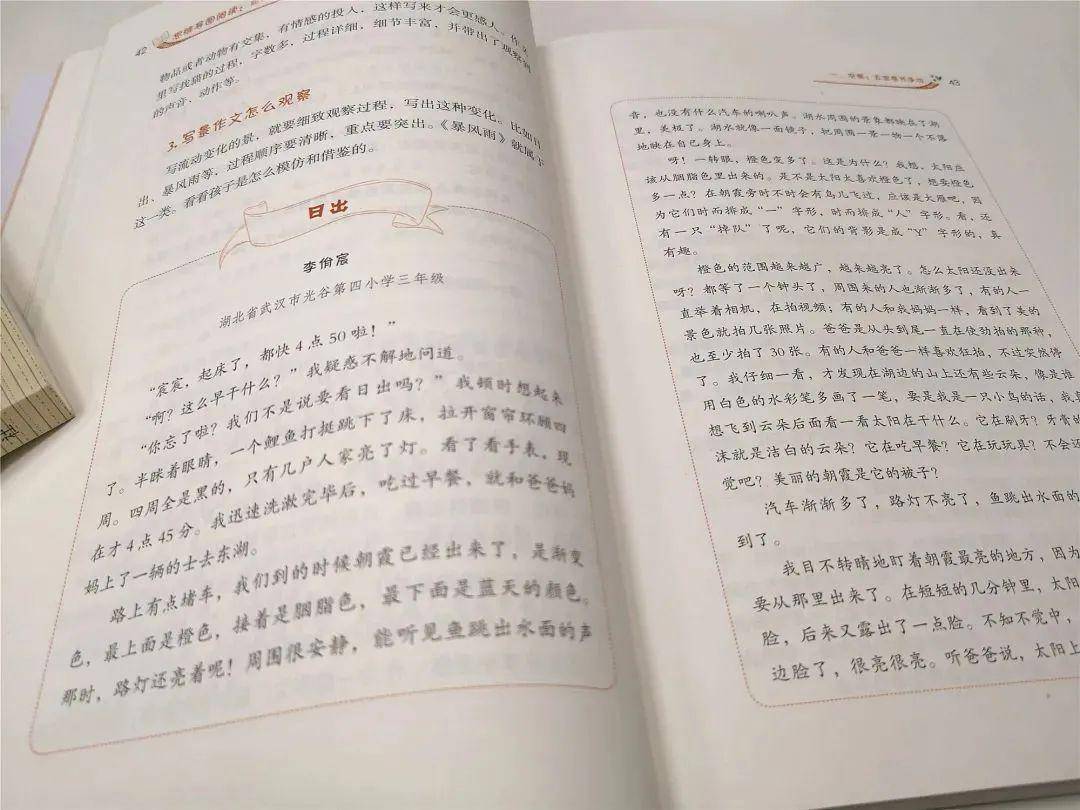 42
物品或者动物有交集，有情感的投入，这样写来才会更感人。作文
里写找猫的过程，字数多，过程详细，细节丰富，并带出了观察到
的声音、动作等。
3.写景作文怎么观察
写流动变化的景，就要细致观察过程，写出这种变化。比如日
出、暴风雨等，过程顺序要清晰，重点要突出。《暴风雨》就属于
这一类。看看孩子是怎么模仿和借鉴的。
日出
李佾宸
湖北省武汉市光谷第四小学三年级
“宸宸，起床了，都快4点50啦！”
“啊？这么早干什么？”我疑惑不解地问道。
“你忘了啦？我们不是说要看日出吗？”我顿时想起来
了。半眯着眼睛，一个鲤鱼打挺跳下了床，拉开窗帘环顾四
周。四周全是黑的，只有几户人家亮了灯。看了看手表，现
在才4点45分。我迅速洗漱完毕后，吃过早餐，就和爸爸妈
妈上了一辆的士去东湖。
路上有点堵车，我们到的时候朝霞已经出来了，是渐变
色，最上面是橙色，接着是胭脂色，最下面是蓝天的颜色。
那时，路灯还亮着呢！周围很安静，能听见鱼跳出水面的声
43
音，也没有什么汽车的喇叭声。湖水周围的景象都映在了湖
里，美极了。湖水就像一面镜子，把周围一景一物一个不落
地映在自己身上。
呀！一转眼，橙色变多了。这是为什么？我想，太阳应
该从胭脂色里出来的。是不是太阳太喜欢橙色了，想要橙色
多一点？在朝霞旁时不时会有鸟儿飞过，应该是大雁吧，因
为它们时而排成“一”字形，时而排成“人”字形。看，还
有一只“掉队”了呢，它们的背影是成“Y”字形的，真
有趣。
橙色的范围越来越广，越来越亮了。怎么太阳还没出来
呀？都等了一个钟头了，周围来的人也渐渐多了，有的人一
直举着相机，在拍视频；有的人和我妈妈一样，看到了美的
景色就拍几张照片。爸爸是从头到尾一直在使劲拍的那种，
也至少拍了30张。有的人和爸爸一样喜欢狂拍，不过突然停
了。我仔细一看，才发现在湖边的山上还有些云朵，像是谁
用白色的水彩笔多画了一笔，要是我是一只小鸟的话，我真
想飞到云朵后面看一看太阳在干什么。它在刷牙？牙膏的
沫就是洁白的云朵？它在吃早餐？它在玩玩具？不会还
觉吧？美丽的朝霞是它的被子？
汽车渐渐多了，路灯不亮了，鱼跳出水面的
到了。
我目不转睛地盯着朝霞最亮的地方，因为
要从那里出来了。在短短的几分钟里，太阳
脸，后来又露出了一点脸。不知不觉中，
边脸了，很亮很亮。听爸爸说，太阳上